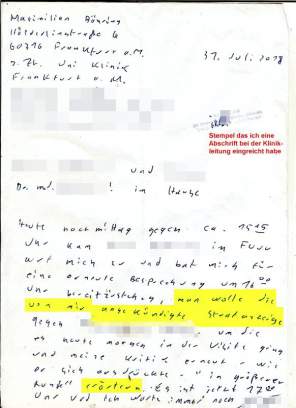 Maximilian Bähring
Hölderlinstraße 4
60316 Frankfurt a.M.
z.Zt. Uni Klinik
Frankfurt a.M.
31. Juli 2018
Stempel das ich eine
Abschrift bei der Klinik-
leitung eingreicht habe
und
Dr. med. ! im Hause
Heute nachmittag gegen ca. 15 15
Uhr kam im Flur
auf mich zu und bat mich für
eine erneute Besprechung um 16 00
Uhr bereitzustehen, man wolle die
von mir angekündigte Strafanzeige
gegen um die
es heute morgen in der Visite ging
und meine Kritik erneut - wie
er sich ausdrückte - " in größerer
erörtern. Es ist jetzt 17
Uhr und ich warte immer noch